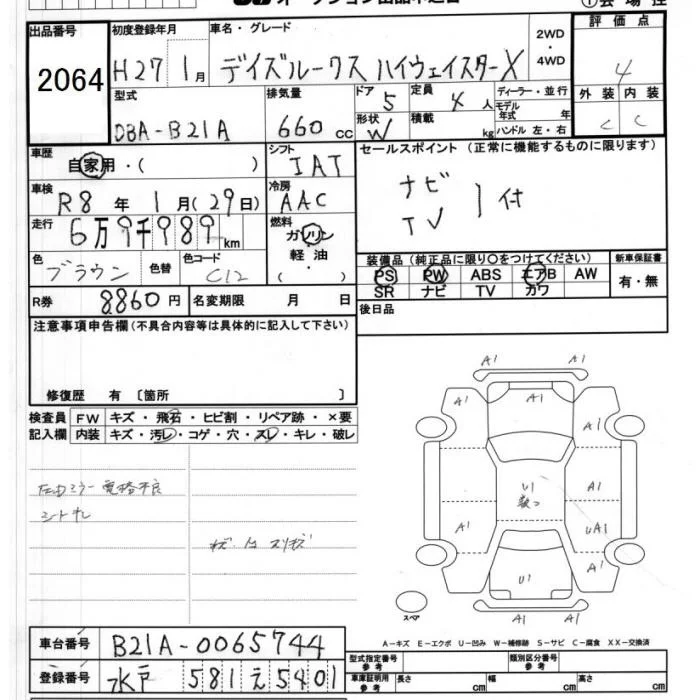 オークション出品申込書
①会場控
出品番号 2064
初度登録年月 H27 1月
車名・グレード デイズルークス ハイウェイスターX
2WD・4WD
評価点 4
外装 C 内装 C
型式 DBA-B21A
排気量 660 cc
ドア 5 定員 4人
形状 W 積載 kg
ディーラー・並行
モデル年式 年
ハンドル 左・右
車歴 自家用・( )
シフト IAT
セールスポイント (正常に機能するものに限ります)
ナビ
TV 付
車検 R8年1月(29日)
冷房 AAC
走行 6万9千989km
燃料 ガソリン・軽油・( )
色 ブラウン 色替
色コード C12
装備品 (純正品に限り○をつけてください)
PS PW ABS エアB AW
SR ナビ TV カワ
新車保証書 有・無
R券 8860円 名変期限 月 日
後日品
注意事項申告欄(不具合内容等は具体的に記入して下さい)
修復歴 有 〔箇所 〕
検査員記入欄
FW キズ・飛石・ヒビ割・リペア跡・×要
内装 キズ・汚レ・コゲ・穴・スレ・キレ・破レ
シート
A1 A1
A1
A1 A1
U1
A1
A1 UA1
A1
U1
A1 A1
スペア
A-キズ E-エクボ U-凹み W-補修跡 S-サビ C-腐食 XX-交換済
車台番号 B21A-0065744
登録番号 水戸 581 え 5401
型式指定番号 参考
類別区分番号 参考
車庫証明用 参考 長さ cm 幅 cm 高さ cm